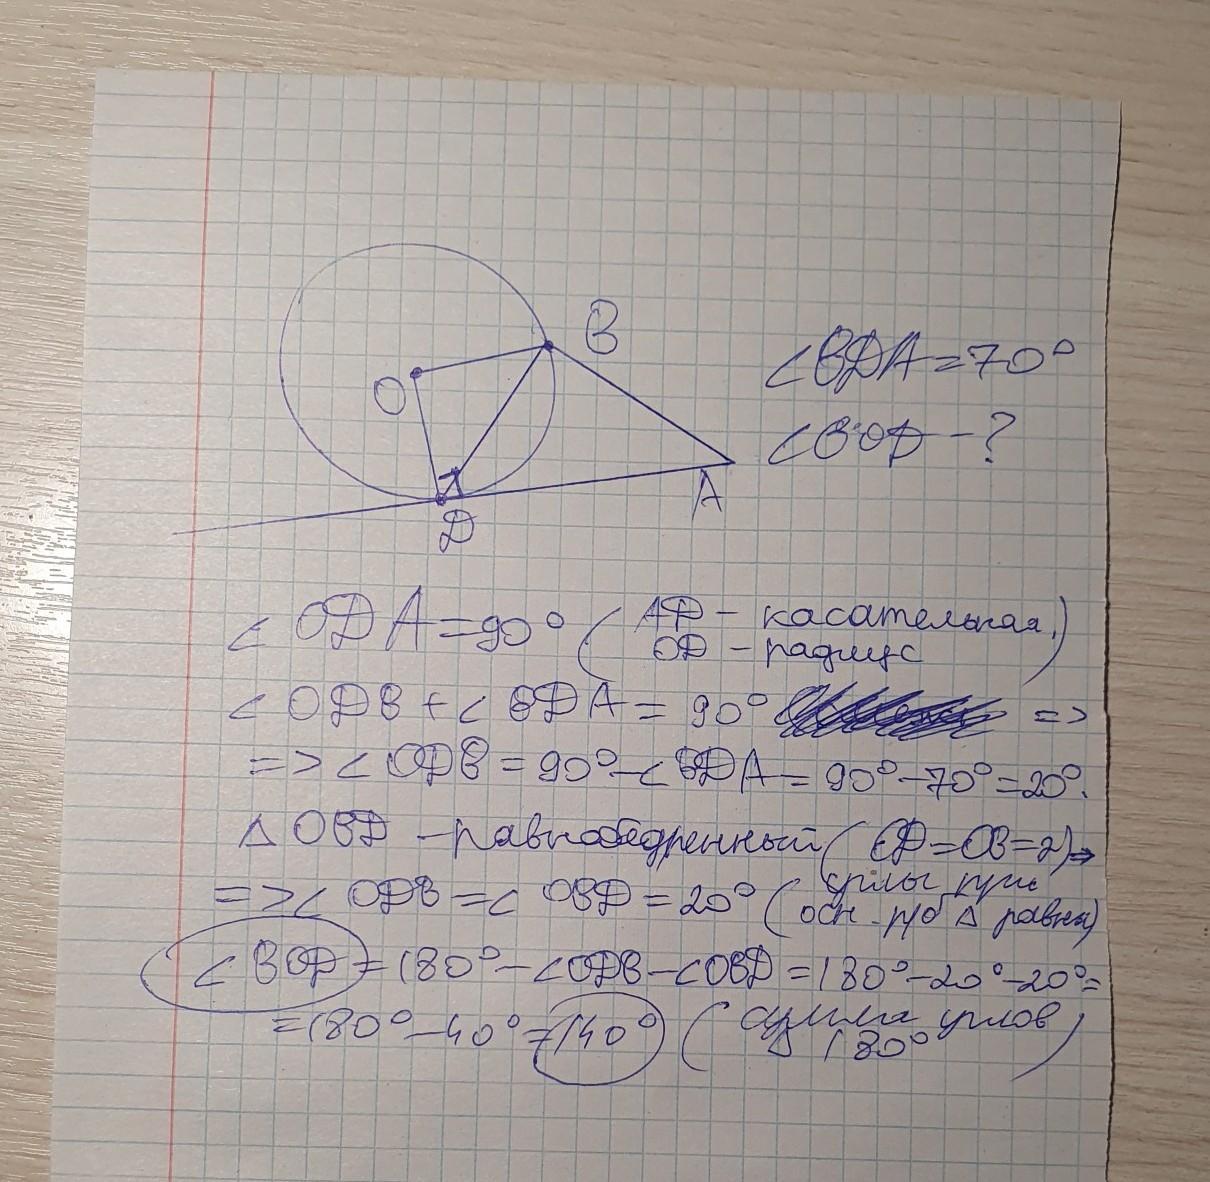 B
O
D
A
∠BDA=70°
∠BOD-?
∠ODA=90° (AD - касательная,
OD - радиус)
∠ODB+∠BDA=90° =>
=>∠ODB=90°-∠BDA=90°-70°=20°.
Δ OBD - равнобедренный (OD=OB=r)=>
=>∠ODB=∠OBD=20° (углы при
осн. р/б Δ равны)
∠BOD=180°-∠ODB-∠OBD=180°-20°-20°=
=180°-40°=140° (сумма углов
Δ 180°)